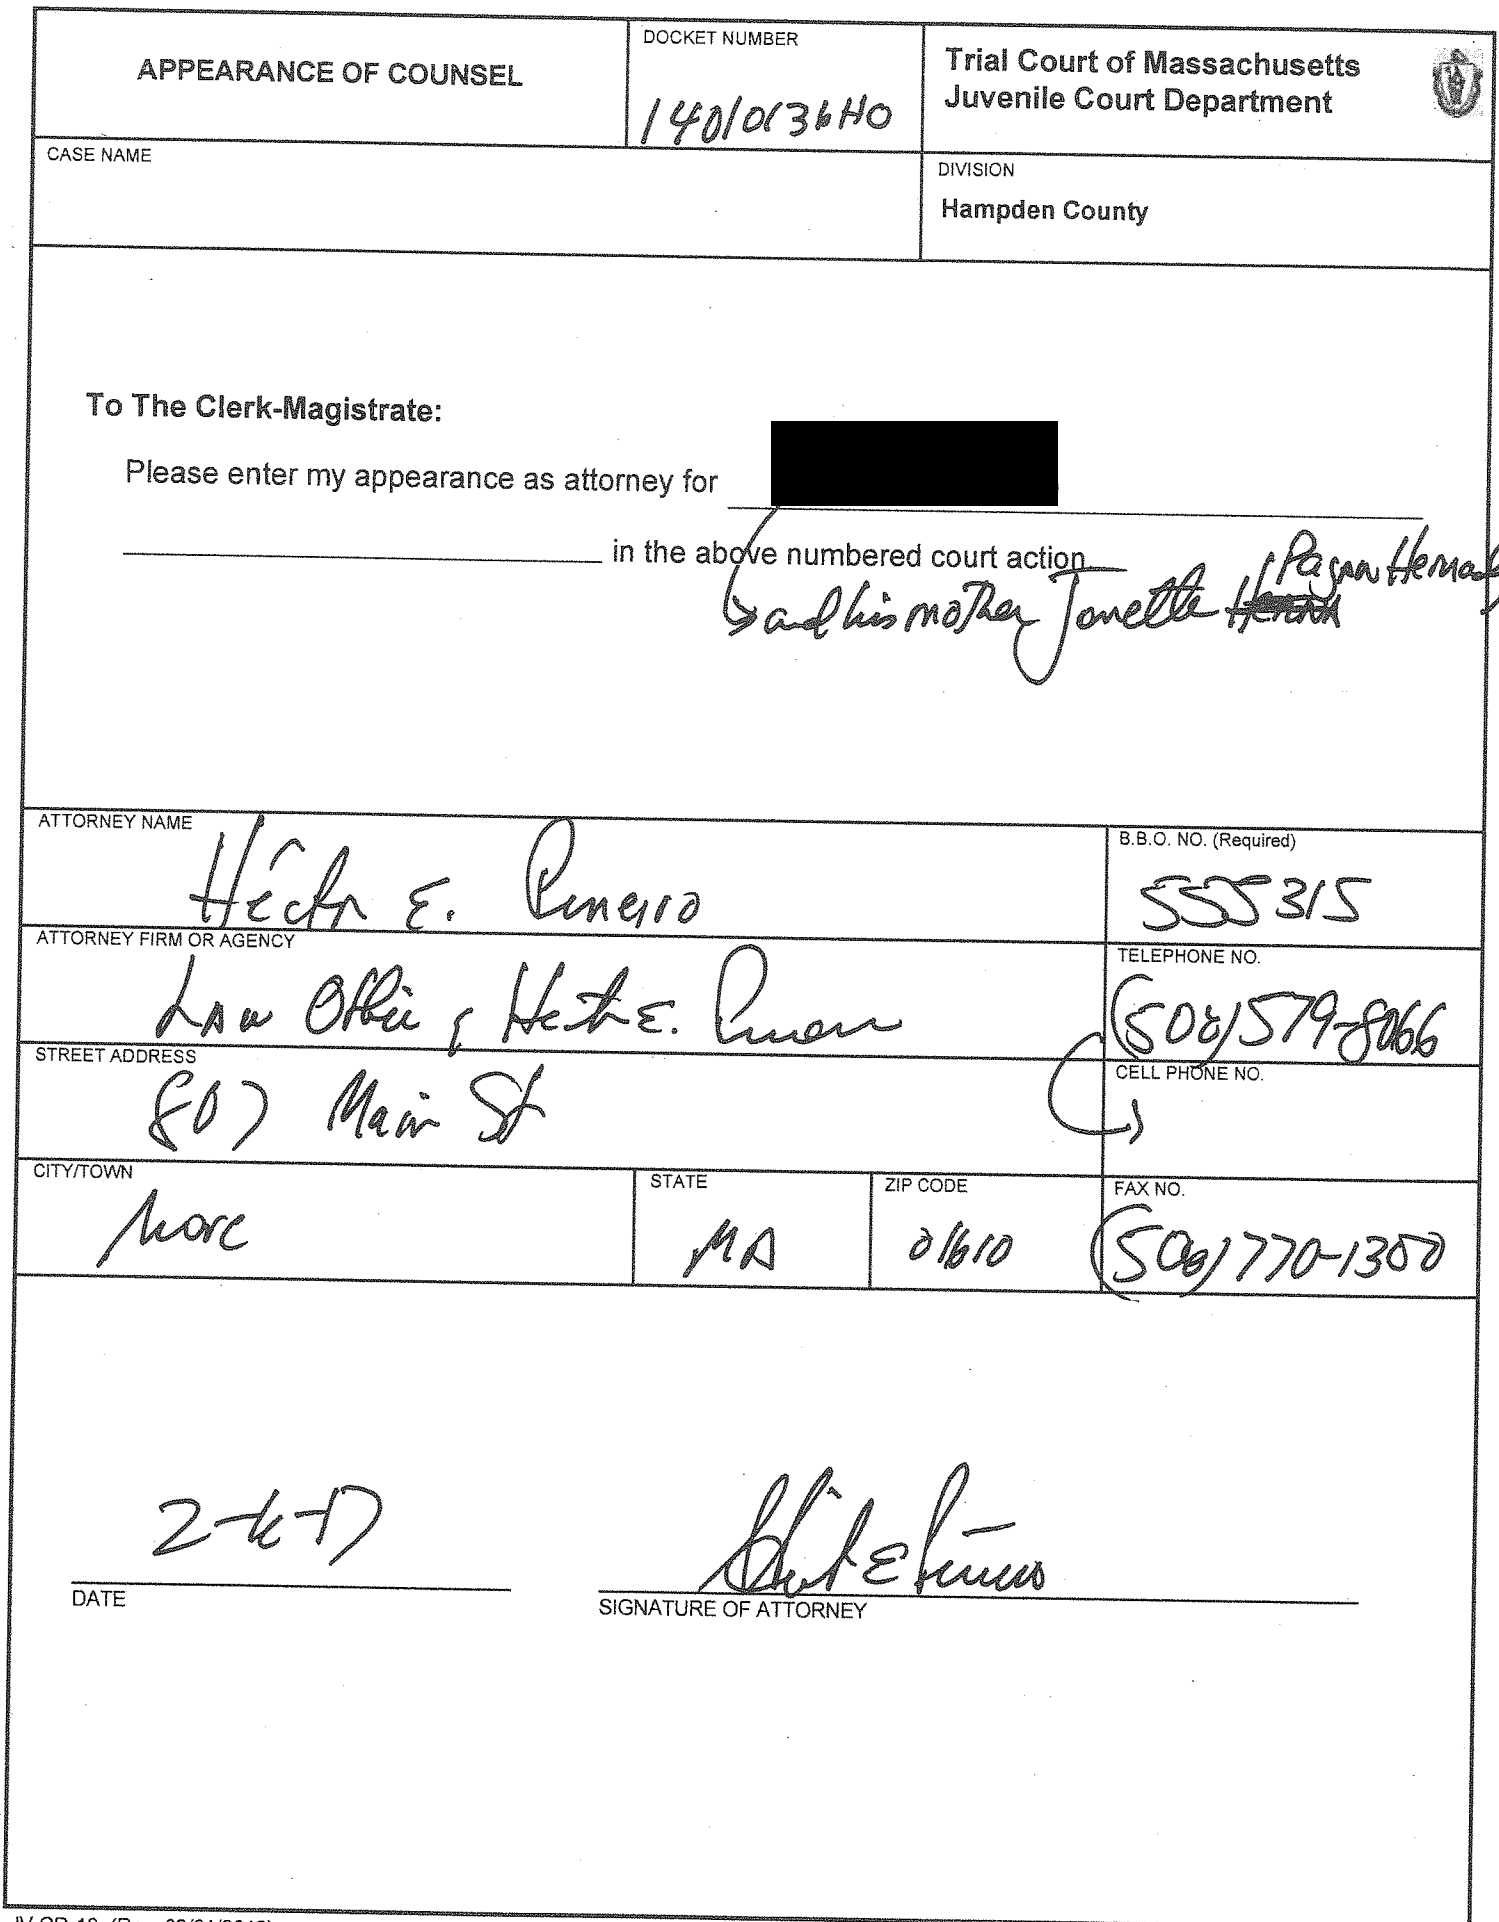 APPEARANCE OF COUNSEL
DOCKET NUMBER
Trial Court of Massachusetts
Juvenile Court Department
CASE NAME
DIVISION
Hampden County
To The Clerk-Magistrate:
Please enter my appearance as attorney for
in the above numbered court action
and his mother Jonette Pagan
ATTORNEY NAME
Héctor E. Pineiro
B.B.O. NO. (Required)
555315
ATTORNEY FIRM OR AGENCY
Law Office of Hector E. Pineiro
TELEPHONE NO.
(508) 579-8066
STREET ADDRESS
807 Main St
CELL PHONE NO.
CITY/TOWN
Worc
STATE
MA
ZIP CODE
01610
FAX NO.
(508) 770-1300
DATE
SIGNATURE OF ATTORNEY